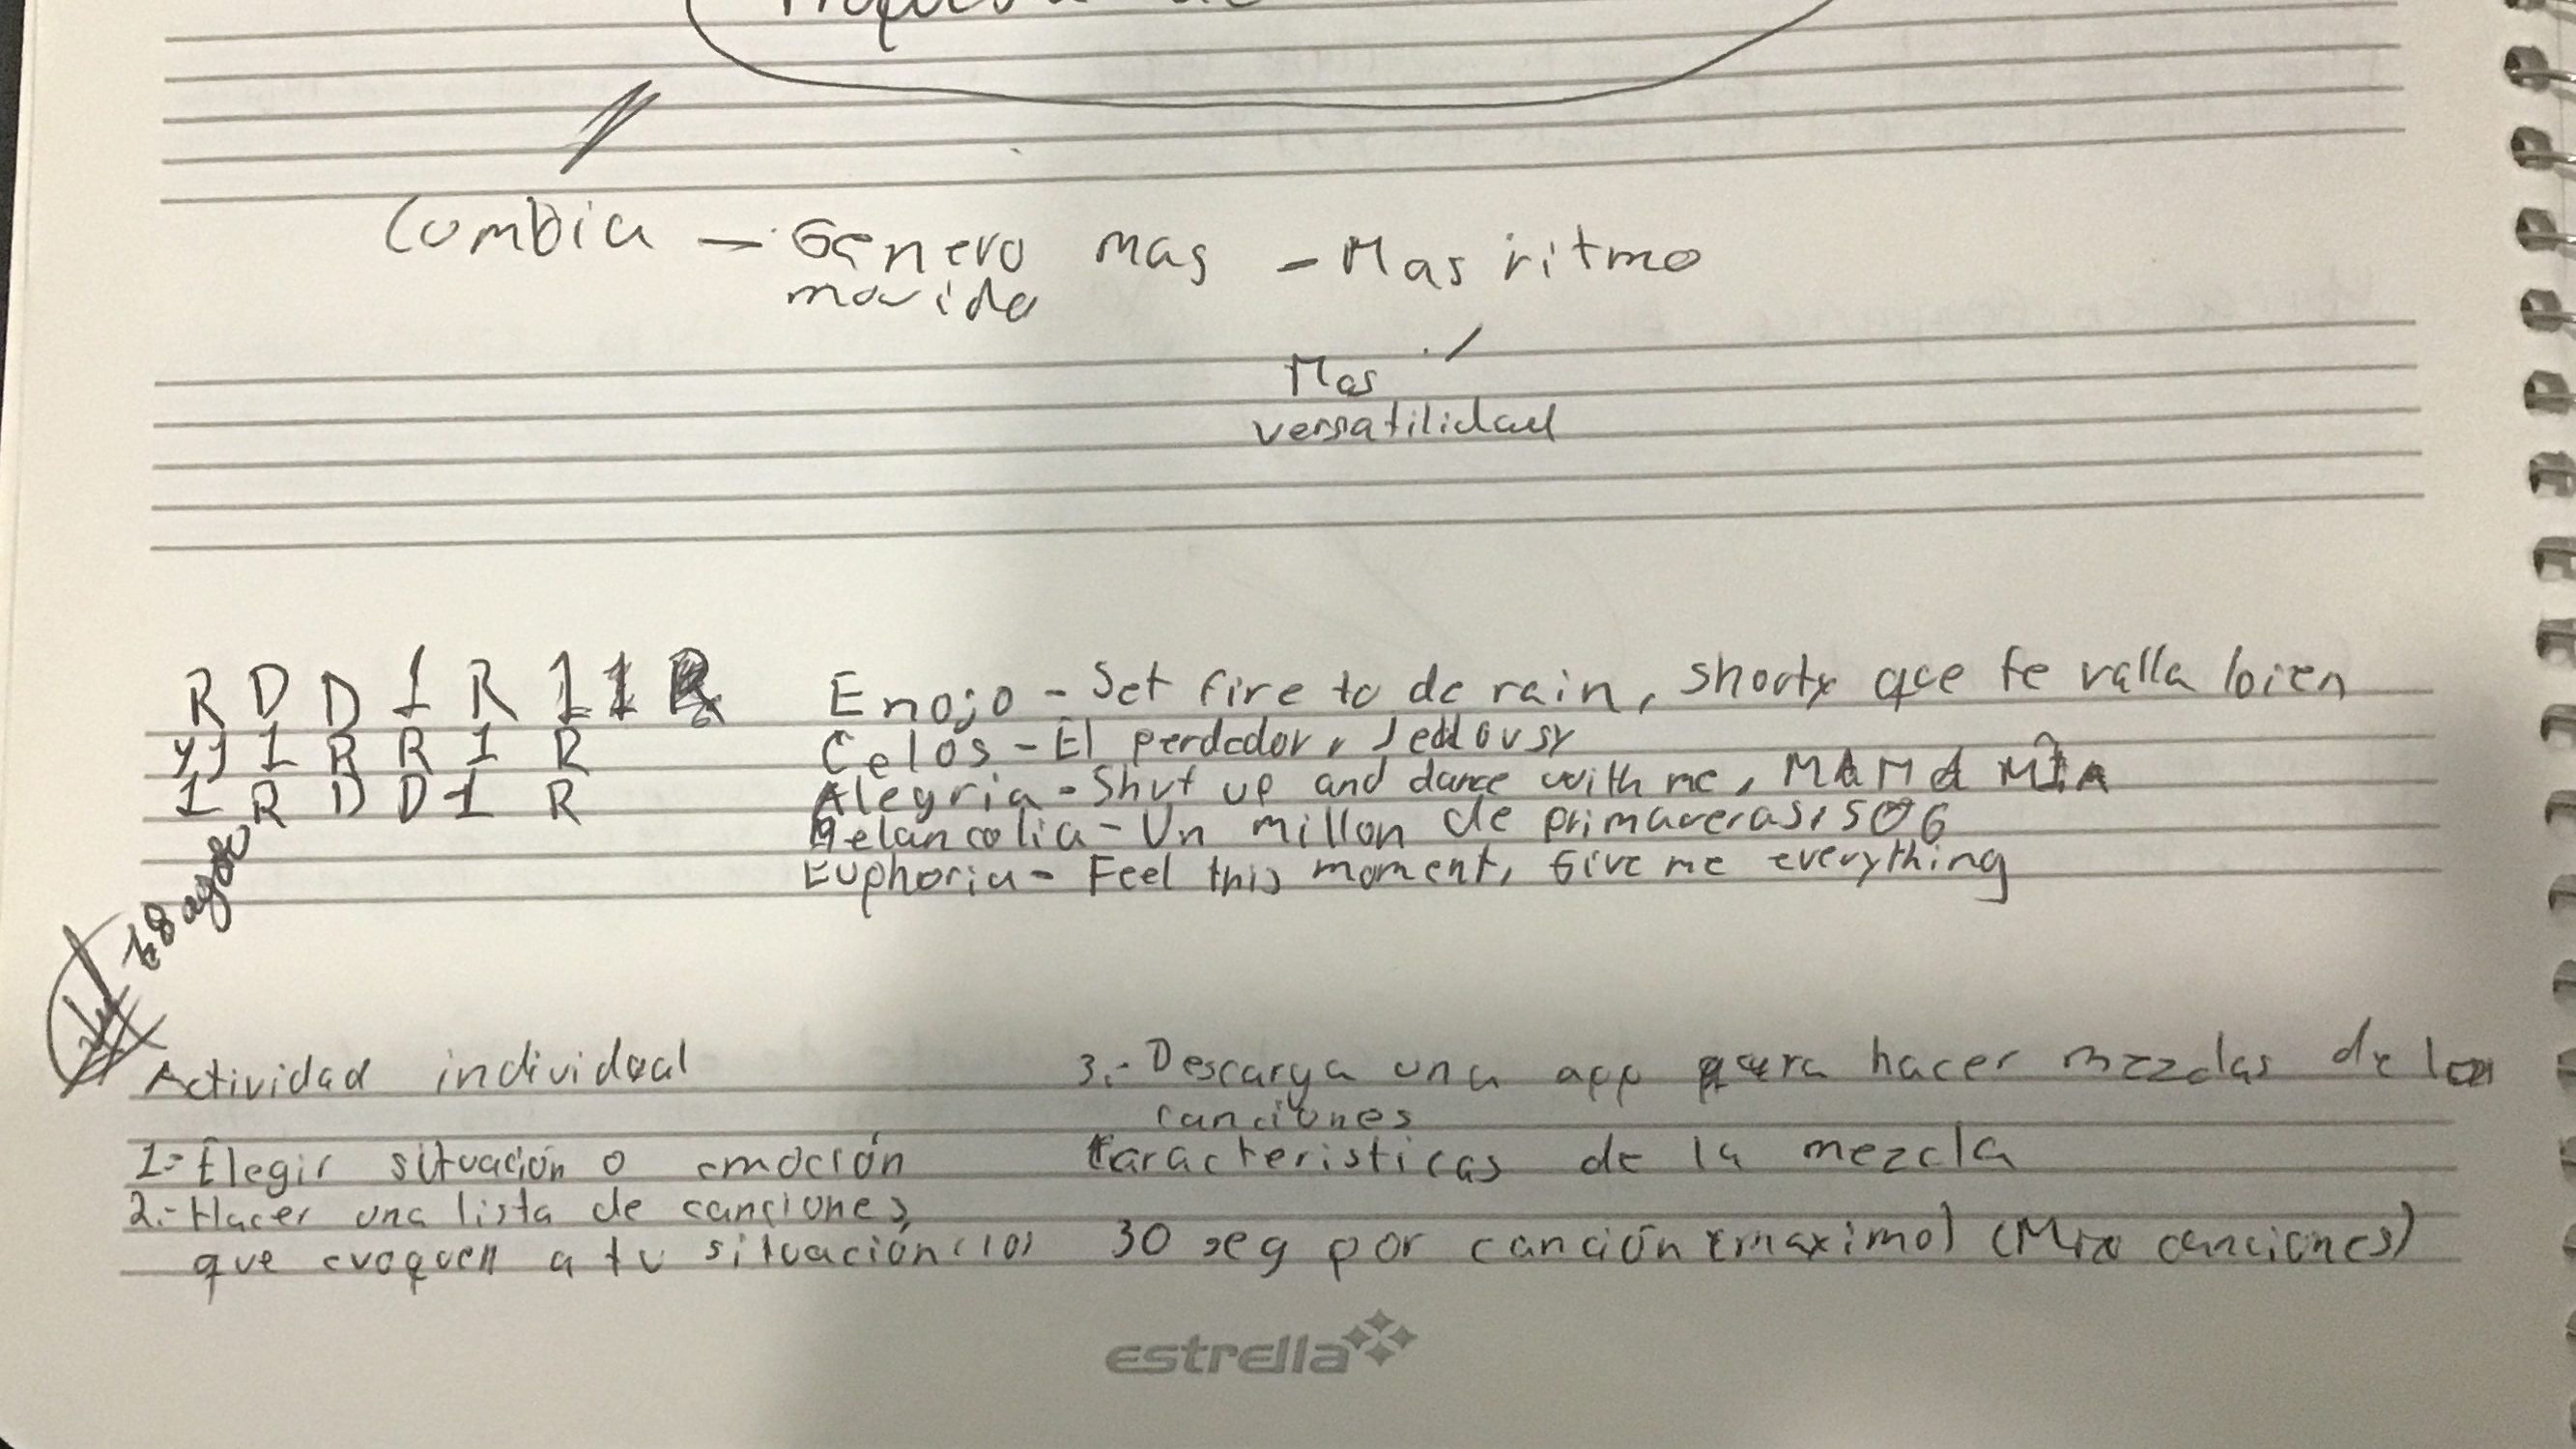 Cumbia — Genero mas - Mas ritmo
movido
Mas
versatilidad
R D D 1 R 1 1
1 R R 1 R
1 R D D 1 R
Enojo - Set fire to de rain, shorty que te valla bien
Celos - El perdedor, Jealousy
Alegria - Shut up and dance with me, MAMA MIA
Melancolia - Un millon de primaveras, 506
Euphoria - Feel this moment, Give me everything
28 agosto
Actividad individual
1.- Elegir situación o emoción
2.- Hacer una lista de canciones,
que evoquen a tu situación (10)
3.- Descarga una app para hacer mezclas de
canciones
Caracteristicas de la mezcla
30 seg por canción (maximo) (Mix canciones)
estrella